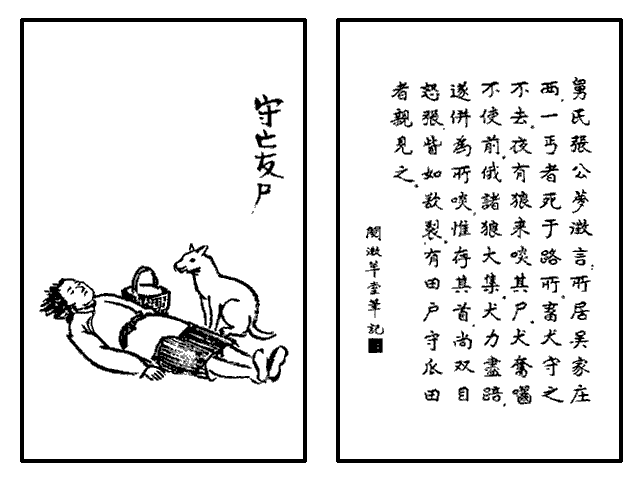 守亡友尸
舅氏張公夢澂言：所居吴家庄
西，一丐者死于路，所畜犬守之
不去。夜有狼来啖其尸，犬奮嚙
不使前。俄諸狼大集，犬力盡踣，
遂併為所啖。惟存其首，尚双目
怒張，眥如欲裂。有田户守瓜田
者親見之。
閱微草堂筆記